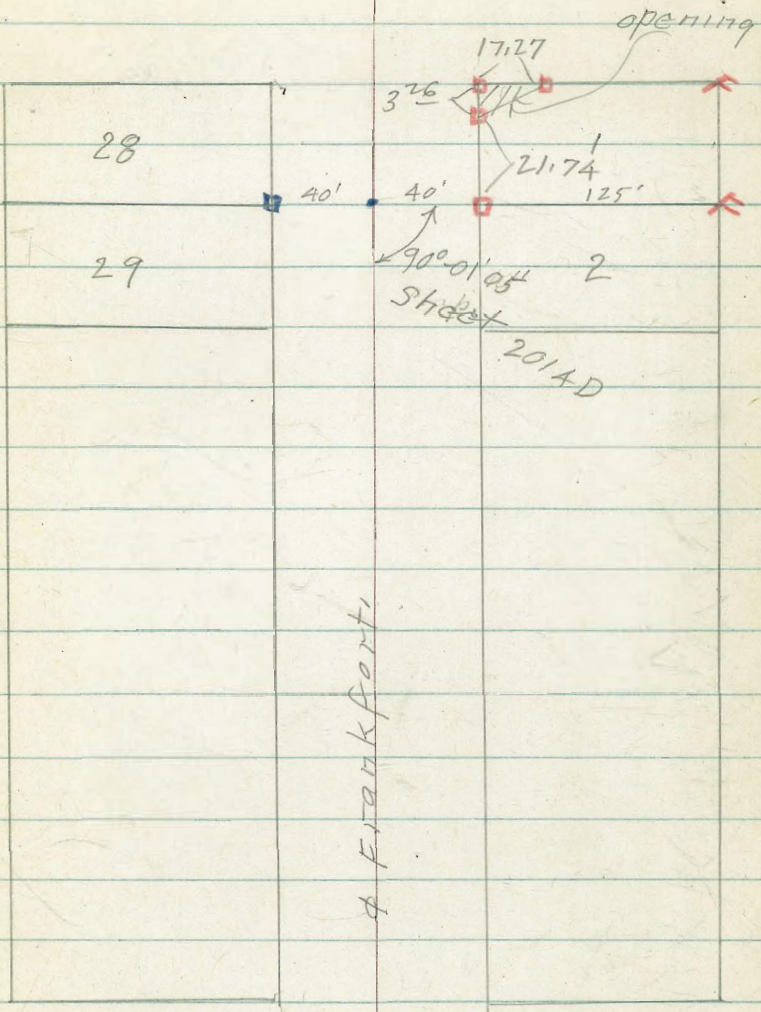 opening
17.27
3 26
28
1
21.74
40'
40'
125'
29
90°-01'05"
2
Sheet
2014D
℄ Frankfort.